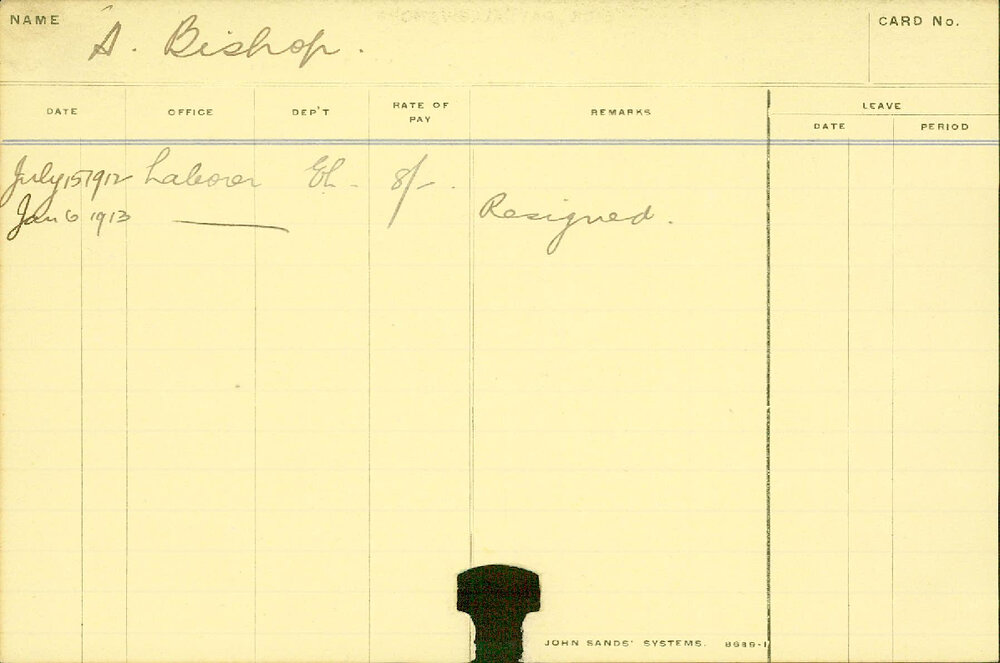 NAME A. Bishop. CARD No.
DATE OFFICE DEP'T RATE OF PAY REMARKS LEAVE
DATE PERIOD
July 15 1912 Laborer 8/-.
Jan 6 1913 Resigned.
JOHN SANDS' SYSTEMS.